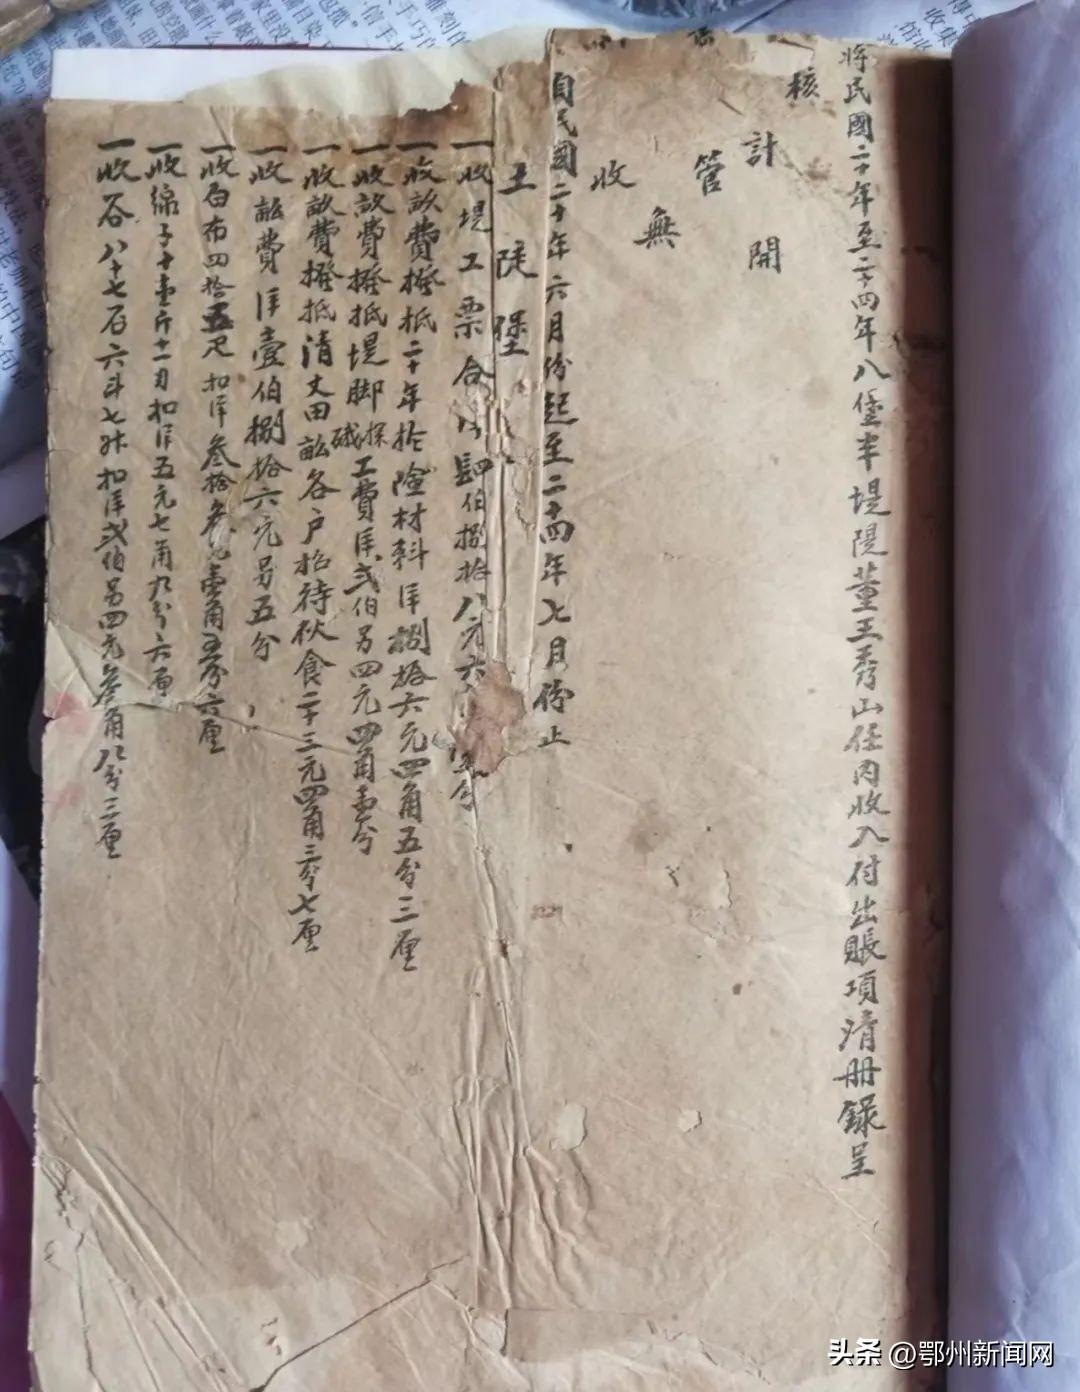 將民國二十年至二十四年八堡半堤隄董王秀山任內收入付出賬項清冊錄呈
核
計開
管
無
收
自民國二十年六月份起至二十四年七月份止
王陡堡
一收堤工票合洋肆伯捌拾八元六
一收畝費撥抵二十年搶險材料洋捌拾六元四角五分三厘
一收畝費撥抵堤脚探硪工費洋弍伯另四元四角壹分
一收畝費撥抵清丈田畝各户招待伙食二十三元四角三分七厘
一收畝費洋壹伯捌拾六元另五分
一收白布四拾五尺扣洋叁拾叁元壹角五分六厘
一收綿子十壹斤十一刃扣洋五元七角九分六厘
一收谷八十七石六斗七升扣洋弍伯另四元叁角八分三厘
头条 @鄂州新闻网